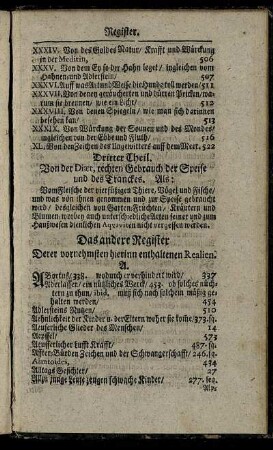 Register.
XXXIV. Von des Goldes Natur/ Krafft und Würckung
in der Medicin, 506
XXXV. Von dem Ey so der Hahn leget/ ingleichen vom
Hahnen und Adlerstein/ 507
XXXVI. Auff was Art und Weise die Hund toll werden/ 511
XXXVII. Von denen geräucherten und dürren Pricken/ wa-
rum sie brennen/ wie ein Licht/ 512
XXXVIII. Von denen Spiegeln/ wie man sich darinnen
besehen kan/ 512
XXXIX. Von Würckung der Sonnen und des Mondes/
ingleichen von der Ebbe und Fluth/ 516
XL. Von den Zeichen des Ungewitters auff dem Meer. 522
Dritter Theil.
Von der Diæt, rechten Gebrauch der Speise
und des Tranckes. Als:
Vom Fleische der vierfüßigen Thiere/ Vögel und Fische/
und was von ihnen genommen und zur Speise gebraucht
wird/ desgleichen von Garten-Früchten/ Kräutern und
Blumen/ worbey auch unterschiedliche Arten seiner und zum
Haußwesen dienlichen nicht vergessen werden.
Das andere Register
Derer vornehmsten hierinn enthaltenen Realien.
A.
ABortus/ 338. wodurch er verhindert wird/ 337
Aderlassen/ ein nützliches Werk/ 453. ob solches nüch-
tern zu thun/ ibid. muß sich nach solchem mäßig ge-
halten werden/ 454
Adlersteins Nutzen/ 510
Aehnlichkeit der Kinder u. der Eltern woher sie komme/ 373. sq.
Aeuserliche Glieder des Menschen/ 14
Aepffel/ 573
Aeuserlicher Lufft Krafft/ 487. sq.
Affter-Bürden Zeichen und der Schwangerschafft/ 246. sq.
Alantoides, 434
Alltags Gesichter/ 27
Allzu junge Leute zeugen schwache Kinder/ 277. seq.